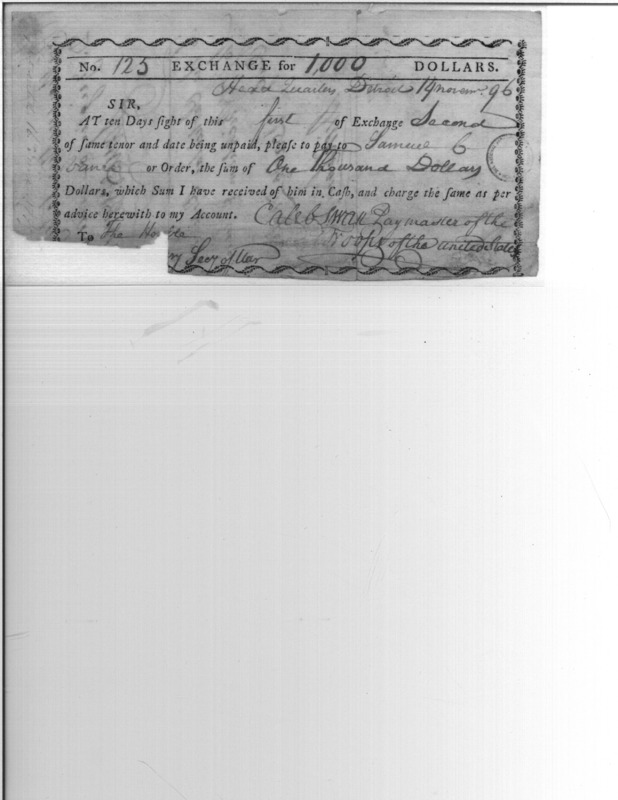 No. 125 EXCHANGE for 1,000 DOLLARS.
Head Quarters, Detroit 14 novemr. 96
SIR,
AT ten Days sight of this first of Exchange Second
of same tenor and date being unpaid, please to pay to Samuel C
or Order, the sum of One Thousand Dollars
Dollars, which Sum I have received of him in Cash, and charge the same as per
advice herewith to my Account. Caleb Swan Paymaster of the
To The Honble Troops of the United States
Secy of War